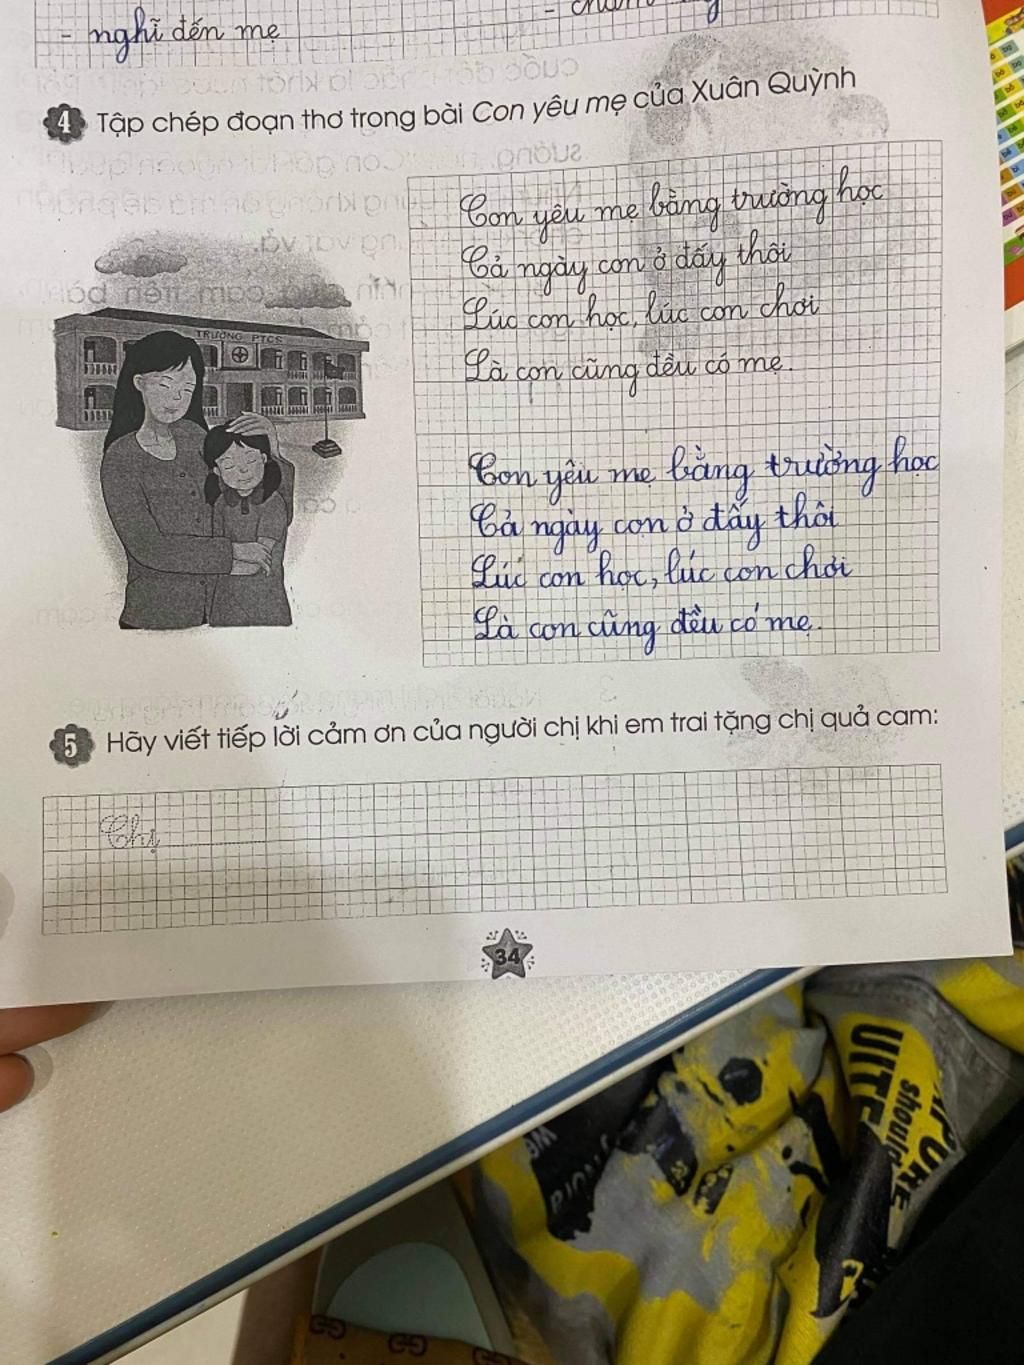 - nghĩ đến mẹ
4 Tập chép đoạn thơ trong bài Con yêu mẹ của Xuân Quỳnh
Con yêu mẹ bằng trường học
Cả ngày con ở đấy thôi
Lúc con học, lúc con chơi
Là con cũng đều có mẹ.
TRƯỜNG PTCS
Con yêu mẹ bằng trường học
Cả ngày con ở đấy thôi
Lúc con học, lúc con chơi
Là con cũng đều có mẹ.
5 Hãy viết tiếp lời cảm ơn của người chị khi em trai tặng chị quả cam:
Chị
34